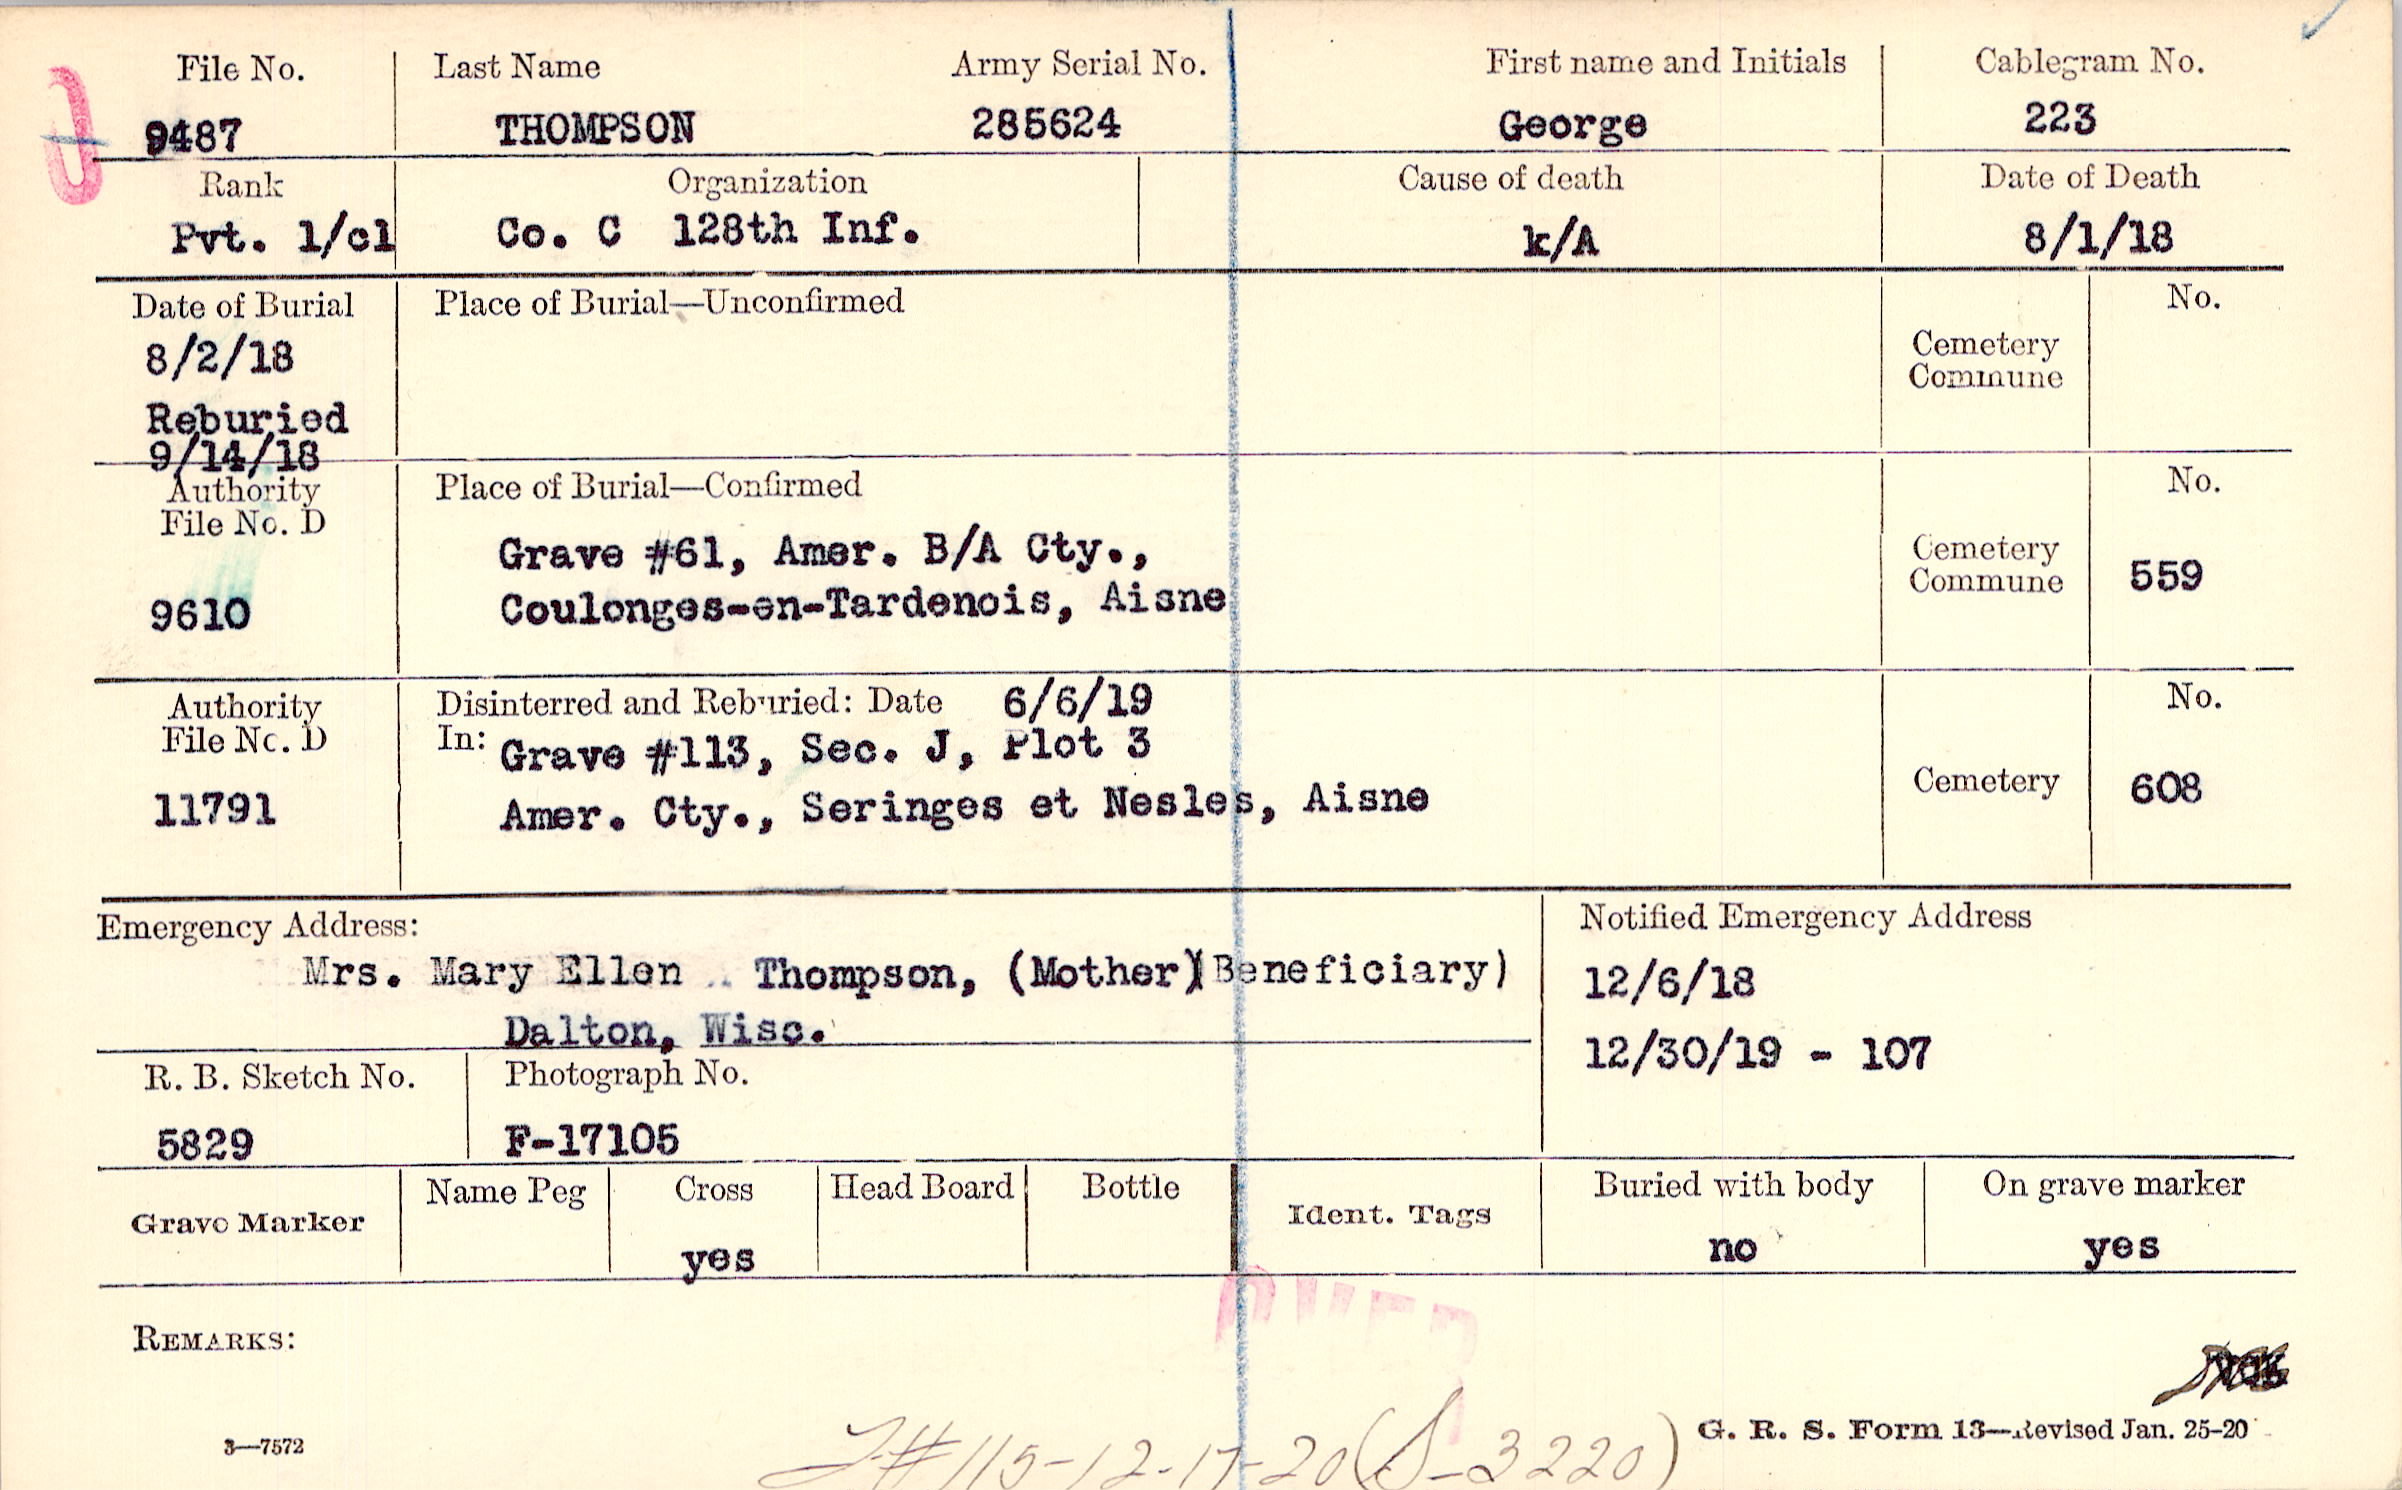 File No. Last Name Army Serial No. First name and Initials Cablegram No.
9487 THOMPSON 285624 George 223
Rank Organization Cause of death Date of Death
Pvt. 1/cl Co. C 128th Inf. k/A 8/1/18
Date of Burial Place of Burial—Unconfirmed No.
8/2/18 Cemetery
Commune
Reburied
9/14/18
Authority Place of Burial—Confirmed No.
File No. D
Grave #61, Amer. B/A Cty., Cemetery
Commune 559
9610 Coulonges-en-Tardenois, Aisne
Authority Disinterred and Reburied: Date 6/6/19 No.
File No. D In: Grave #113, Sec. J, Plot 3
11791 Amer. Cty., Seringes et Nesles, Aisne Cemetery 608
Emergency Address: Notified Emergency Address
Mrs. Mary Ellen Thompson, (Mother)(Beneficiary) 12/6/18
Dalton, Wisc. 12/30/19 - 107
R. B. Sketch No. Photograph No.
5829 F-17105
Grave Marker Name Peg Cross Head Board Bottle Ident. Tags Buried with body On grave marker
yes no yes
OVER
REMARKS:
3—7572 G. R. S. Form 13—Revised Jan. 25-20
#115-12-17-20 (S-3220)